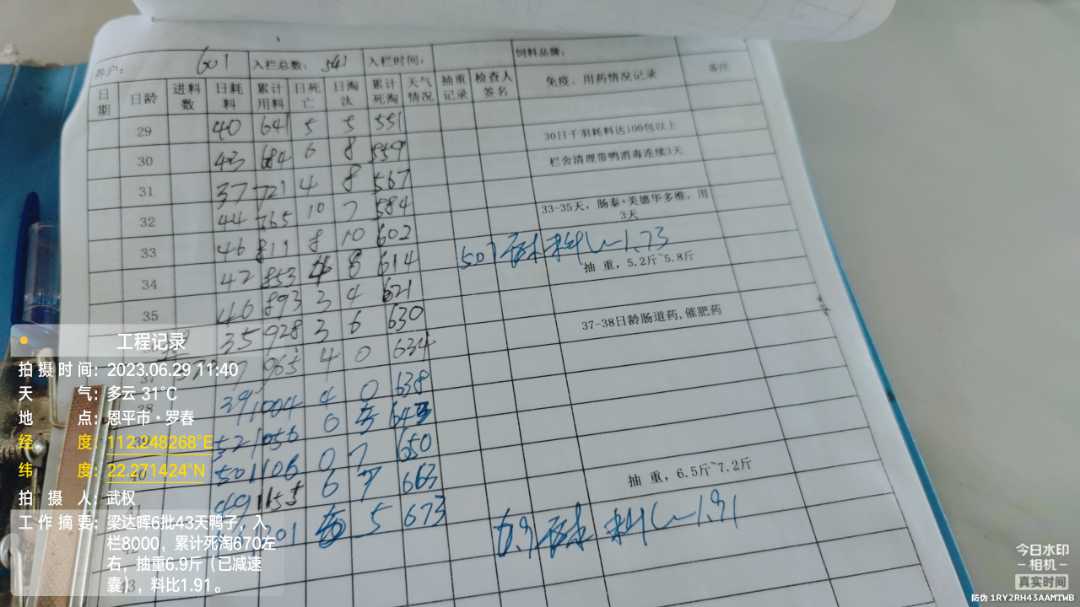 养户： 601 入栏总数： 541 入栏时间： 饲料品牌：
日期 日龄 进料数 日耗料 累计用料 日死亡 日淘汰 累计死淘 天气情况 抽重记录 检查人签名 免疫、用药情况记录 备注
29 40 641 5 5 551 30日千羽耗料达100包以上
30 43 684 6 8 559 栏舍清理带鸭消毒连续3天
31 37 721 4 8 567
32 44 765 10 7 584 33-35天，肠泰+美德华多维，用3天
33 46 811 8 10 602
34 42 853 8 614 抽 重，5.2斤~5.8斤
35 40 893 3 4 621
35 928 3 6 630 37-38日龄肠道药，催肥药
963 4 0 634
39 1004 4 0 638
52 1056 0 5 643
50 1106 0 7 650 抽 重，6.5斤~7.2斤
49 1155 6 7 663
5 673
料比1.73
6.9 料比1.91
工程记录
拍摄时间：2023.06.29 11:40
天 气：多云 31°C
地 点：恩平市·罗春
经 度：112.248268°E
纬 度：22.271424°N
拍 摄 人：武权
工作摘要：梁达晖6批43天鸭子，入
栏8000，累计死淘670左
右，抽重6.9斤（已减速
囊），料比1.91。
今日水印
相机
真实时间
防伪 1RY2RH43AAMTWB